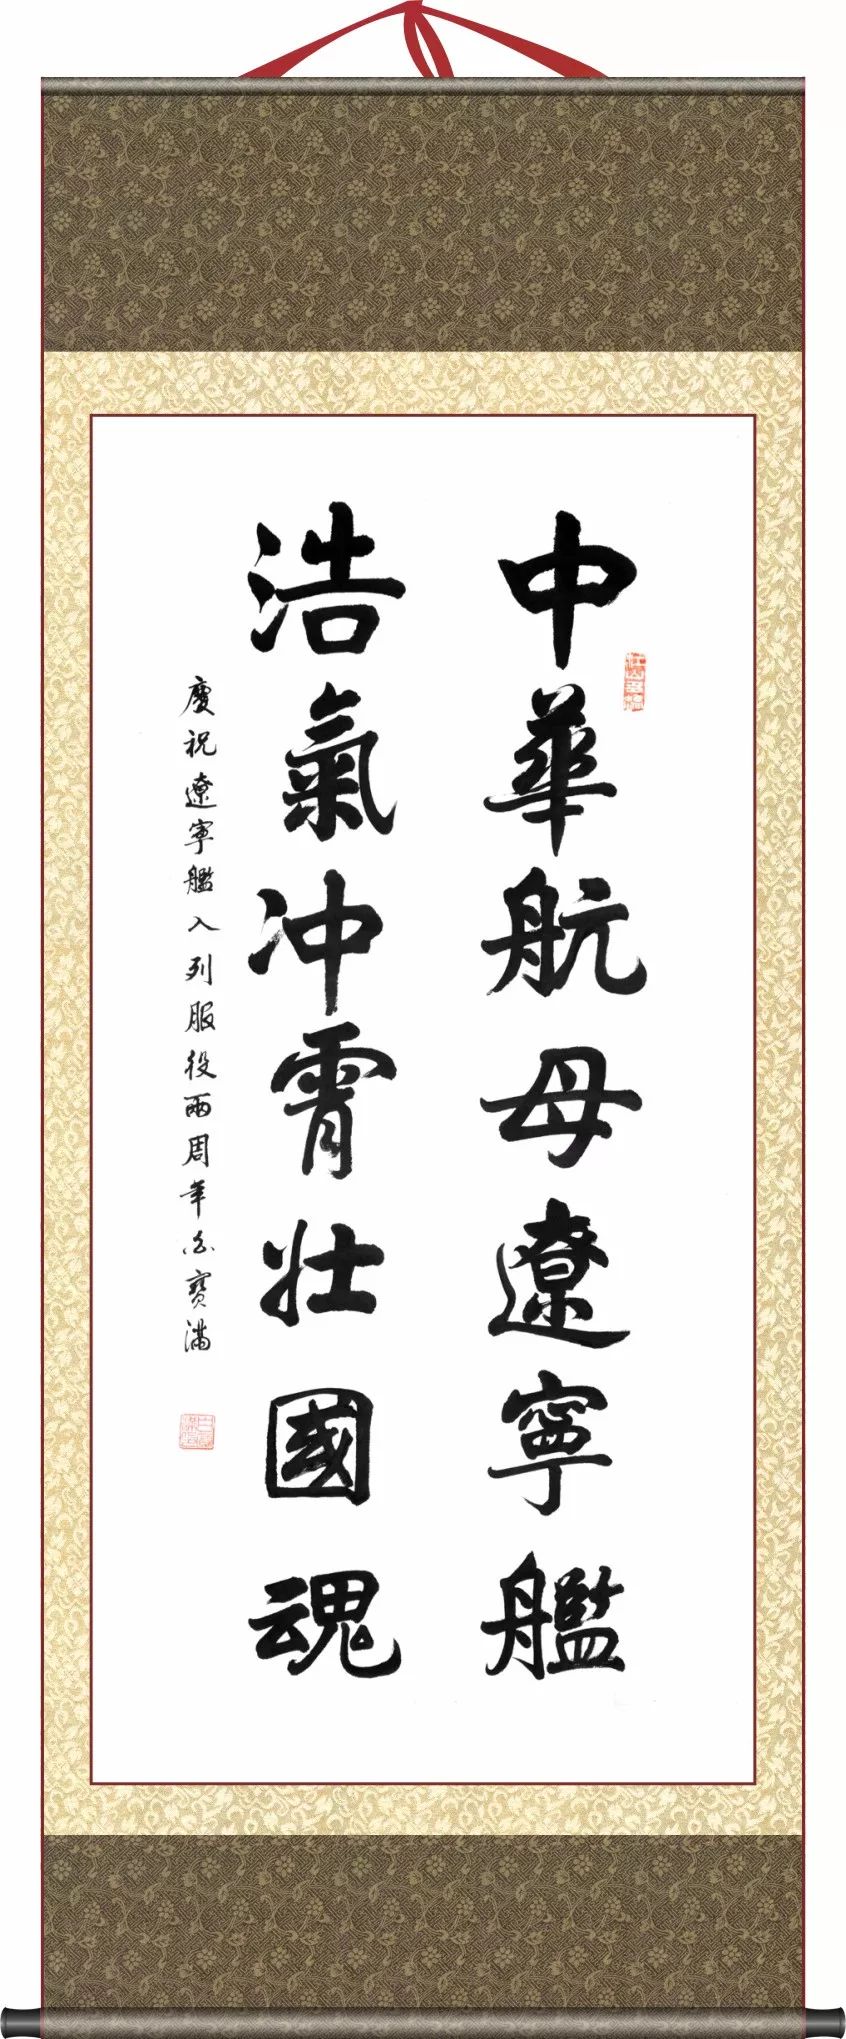 中華航母遼寧艦
浩氣冲霄壯國魂
慶祝遼寧艦入列服役兩周年白寶滿